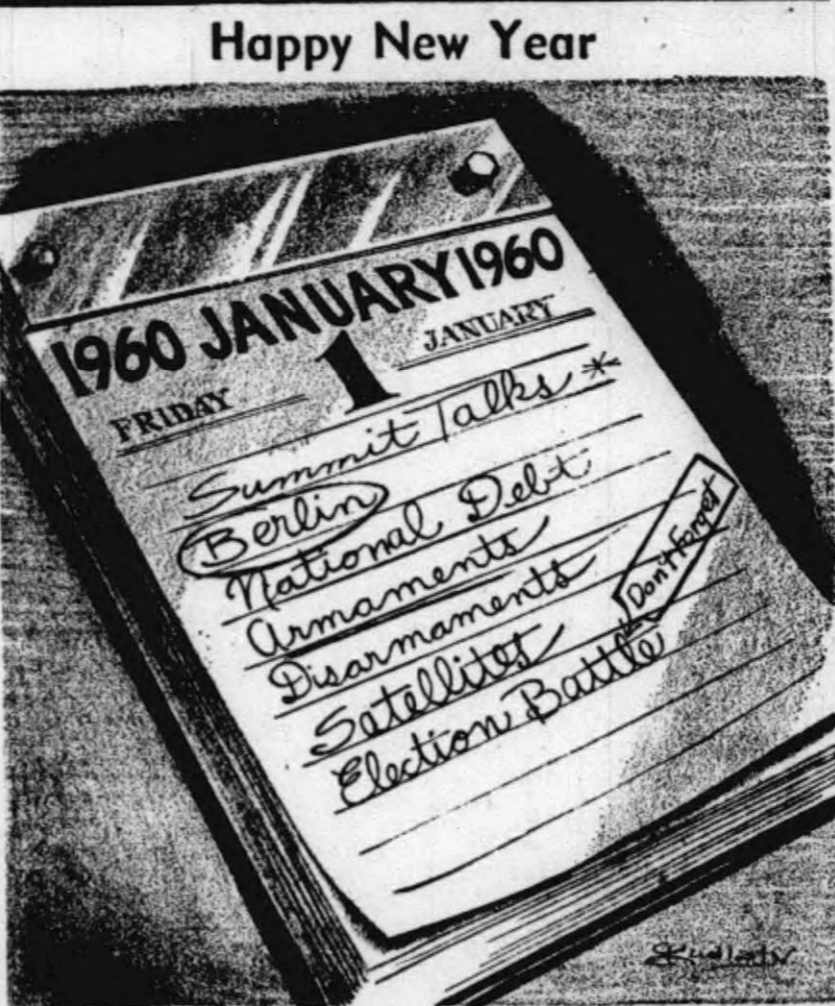 Happy New Year
1960 JANUARY 1960
FRIDAY 1 JANUARY
Summit Talks *
Berlin
National Debt
Armaments
Disarmaments
Satellites
Don't Forget
Election Battle